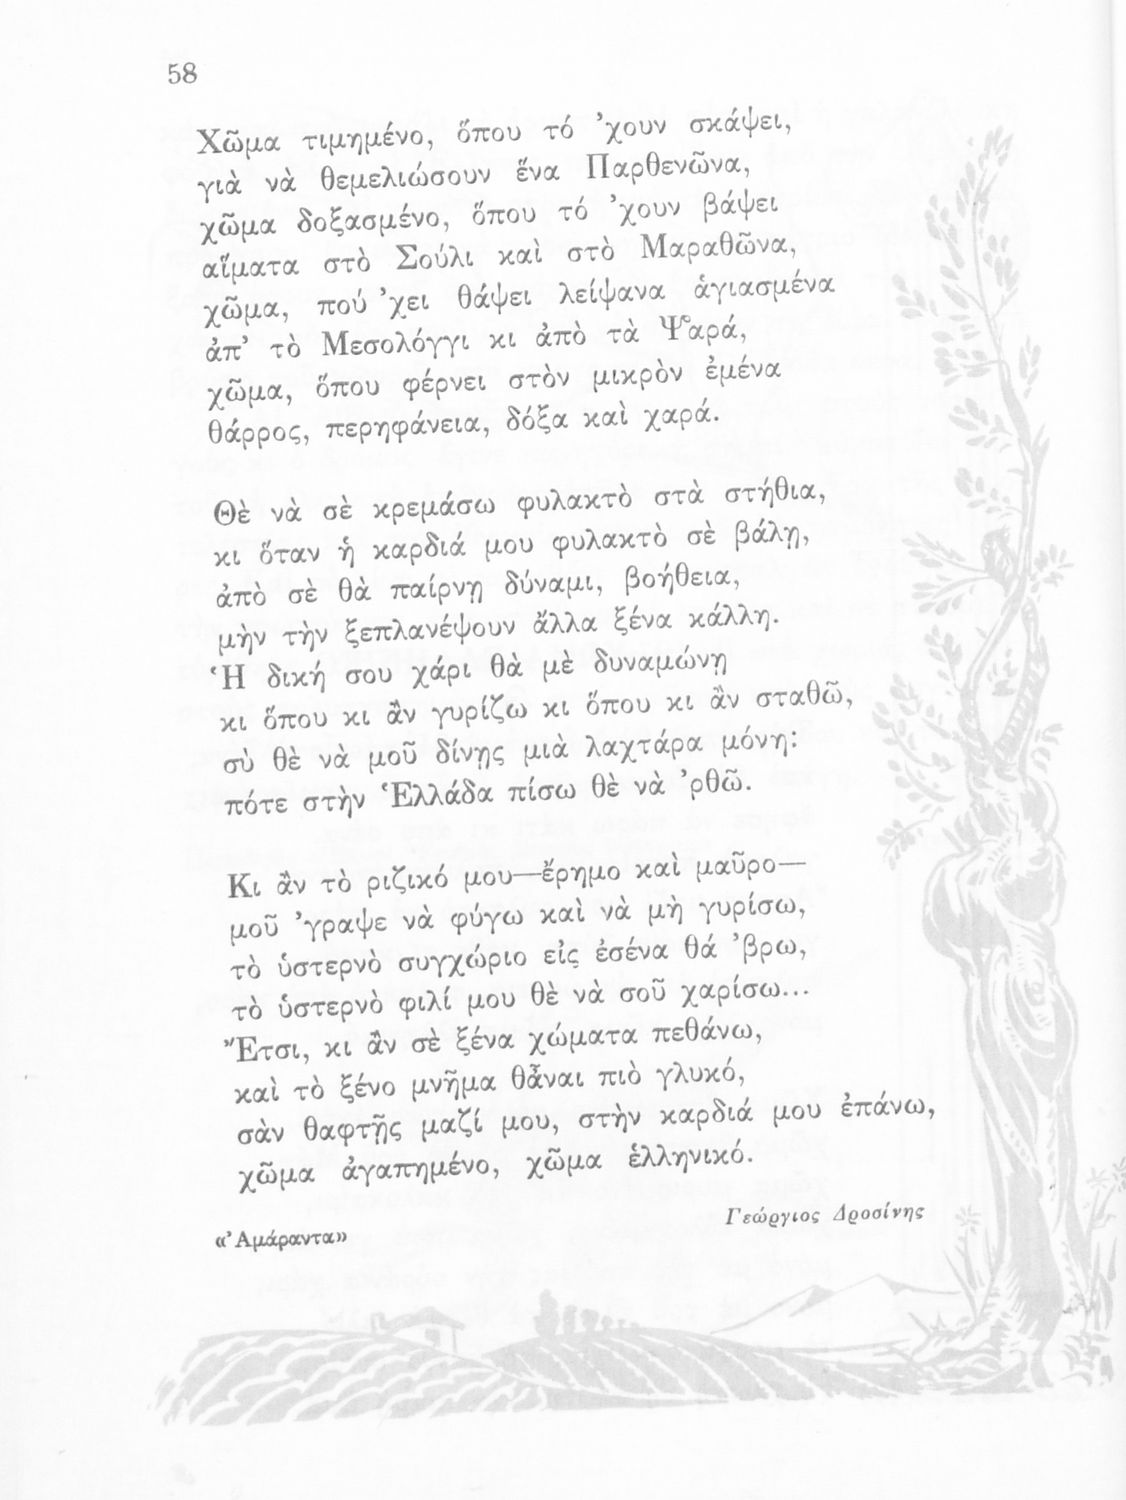 58
Χῶμα τιμημένο, ὅπου τό ’χουν σκάψει,
γιὰ νὰ θεμελιώσουν ἕνα Παρθενῶνα,
χῶμα δοξασμένο, ὅπου τό ’χουν βάψει
αἵματα στὸ Σούλι καὶ στὸ Μαραθῶνα,
χῶμα, πού ’χει θάψει λείψανα ἁγιασμένα
ἀπ’ τὸ Μεσολόγγι κι ἀπὸ τὰ Ψαρά,
χῶμα, ὅπου φέρνει στὸν μικρὸν ἐμένα
θάρρος, περηφάνεια, δόξα καὶ χαρά.
Θὲ νὰ σὲ κρεμάσω φυλακτὸ στὰ στήθια,
κι ὅταν ἡ καρδιά μου φυλακτὸ σὲ βάλῃ,
ἀπὸ σὲ θὰ παίρνῃ δύναμι, βοήθεια,
μὴν τὴν ξεπλανέψουν ἄλλα ξένα κάλλη.
Ἡ δική σου χάρι θὰ μὲ δυναμώνῃ
κι ὅπου κι ἂν γυρίζω κι ὅπου κι ἂν σταθῶ,
σὺ θὲ νὰ μοῦ δίνῃς μιὰ λαχτάρα μόνη:
πότε στὴν Ἑλλάδα πίσω θὲ νὰ ’ρθῶ.
Κι ἂν τὸ ριζικό μου—ἔρημο καὶ μαῦρο—
μοῦ ’γραψε νὰ φύγω καὶ νὰ μὴ γυρίσω,
τὸ ὑστερνὸ συγχώριο εἰς ἐσένα θά ’βρω,
τὸ ὑστερνὸ φιλί μου θὲ νὰ σοῦ χαρίσω...
Ἔτσι, κι ἂν σὲ ξένα χώματα πεθάνω,
καὶ τὸ ξένο μνῆμα θἆναι πιὸ γλυκό,
σὰν θαφτῇς μαζί μου, στὴν καρδιά μου ἐπάνω,
χῶμα ἀγαπημένο, χῶμα ἑλληνικό.
Γεώργιος Δροσίνης
«’Αμάραντα»